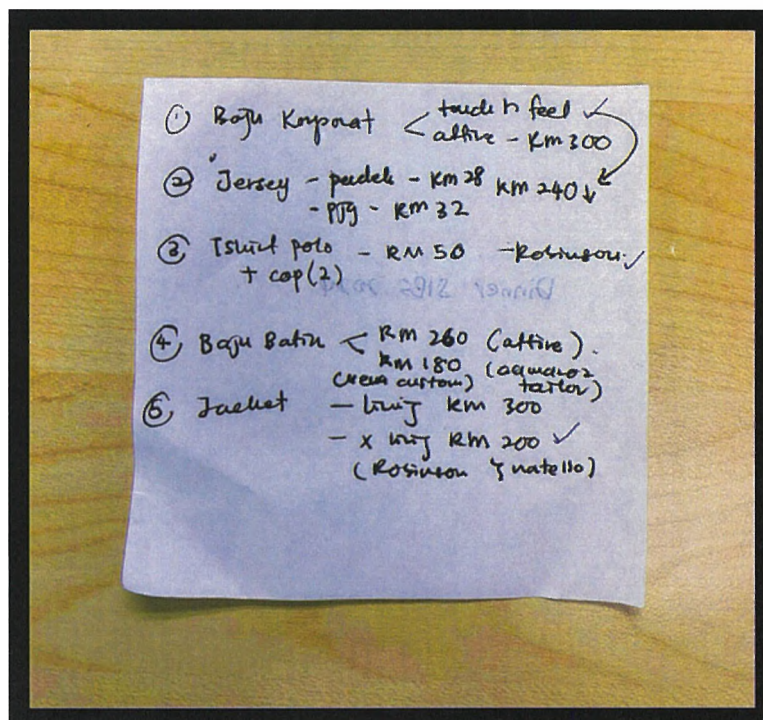 ① Baju Korporat < touch n feel ✓
attire - RM 300
② Jersey - pendek - RM 28 RM 240 ↓
- pjg - RM 32
③ Tshirt polo - RM 50 - Robinson ✓
+ cop (2)
Dinner SIBS
④ Baju Batik < RM 260 (attire).
RM 180 (aquaroz tailor)
(semi custom)
⑤ Jacket - lining RM 300
- x lining RM 200 ✓
(Robinson & natello)